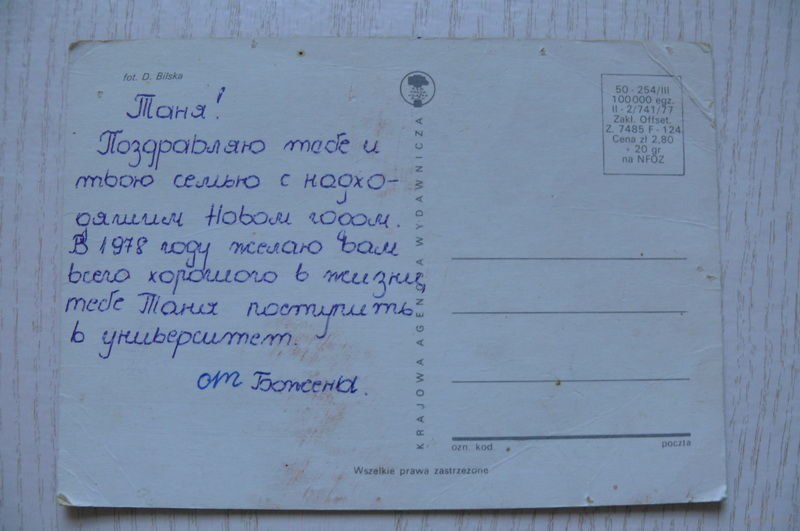 fot. D. Bilska
Таня!
Поздравляю тебе и
твою семью с надхо-
дящим Новом годом.
В 1978 году желаю вам
всего хорошого в жизни,
тебе Таня поступить
в университет.
от Божены.
KRAJOWA AGENCJA WYDAWNICZA
50 - 254/III
100 000 egz.
II - 2/741/77
Zakł. Offset.
Z. 7485 F - 124
Cena zł 2,80
+ 20 gr
na NFOZ
ozn. kod.
poczta
Wszelkie prawa zastrzeżone